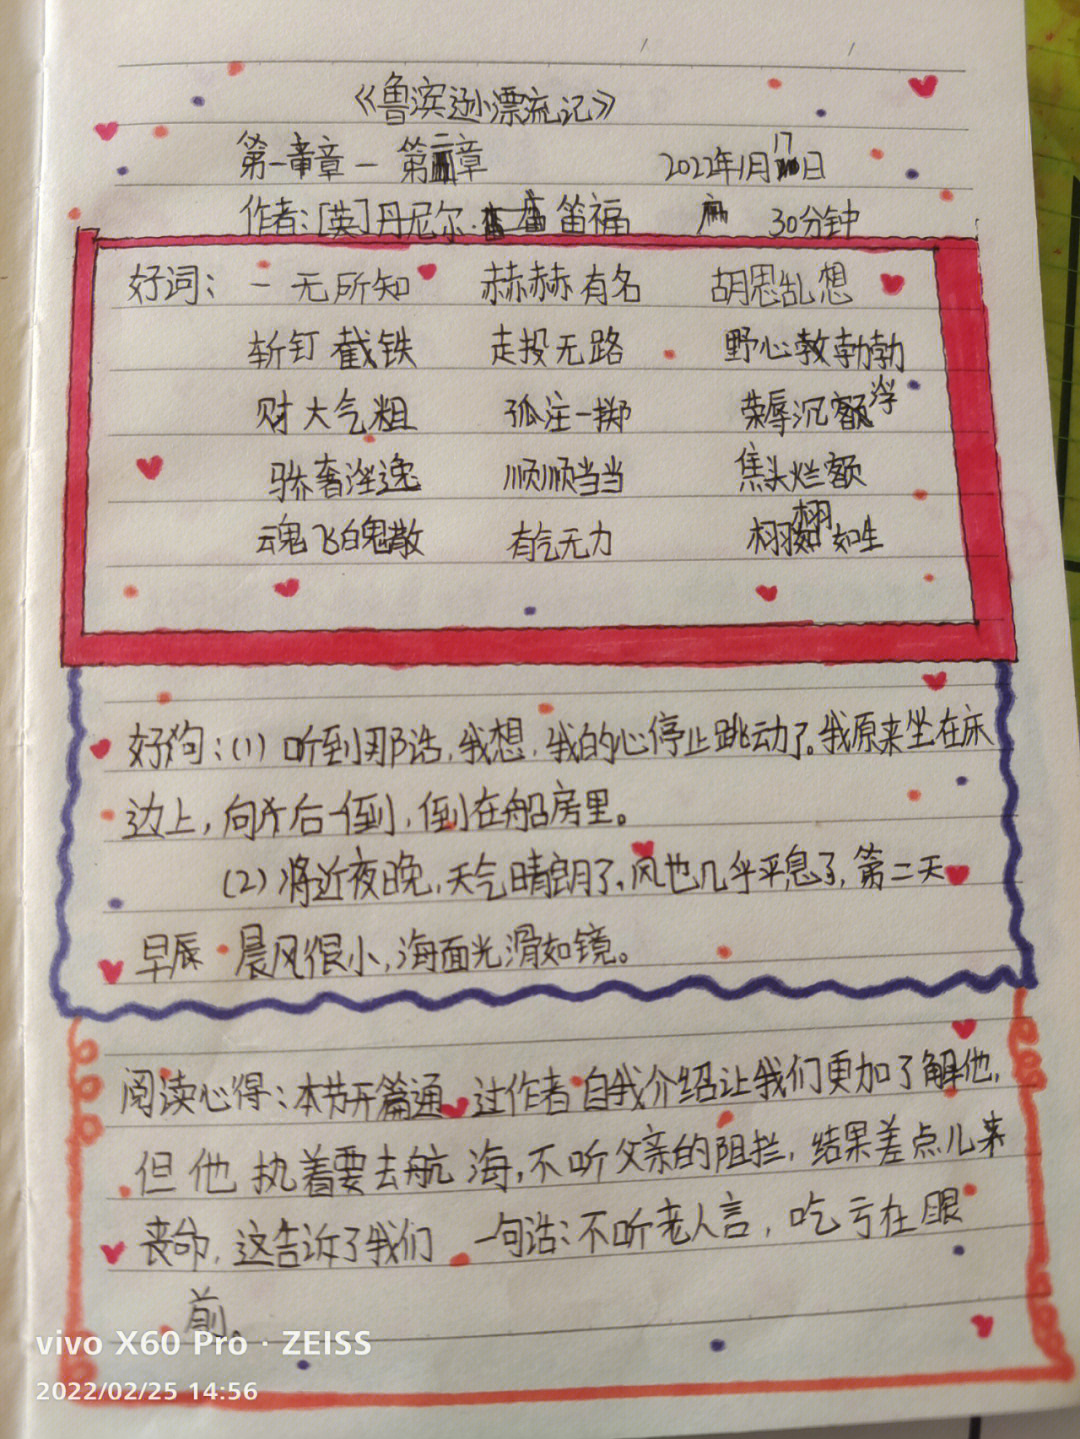 《鲁滨逊漂流记》
第一章章 — 第二章 2022年1月17日
作者:[英]丹尼尔·笛福 30分钟
好词: 一无所知 赫赫有名 胡思乱想
斩钉截铁 走投无路 野心勃勃
财大气粗 孤注一掷 荣辱沉浮
骄奢淫逸 顺顺当当 焦头烂额
魂飞魄散 有气无力 栩栩如生
好句:(1)听到那话,我想,我的心停止跳动了。我原来坐在床
边上,向后一倒,倒在船房里。
(2)将近夜晚,天气晴朗了,风也几乎平息了,第二天
早辰 晨风很小,海面光滑如镜。
阅读心得:本节开篇通过作者自我介绍让我们更加了解他,
但他执着要去航海,不听父亲的阻拦,结果差点儿来
丧命,这告诉了我们一句话:不听老人言,吃亏在眼
前。
vivo X60 Pro · ZEISS
2022/02/25 14:56